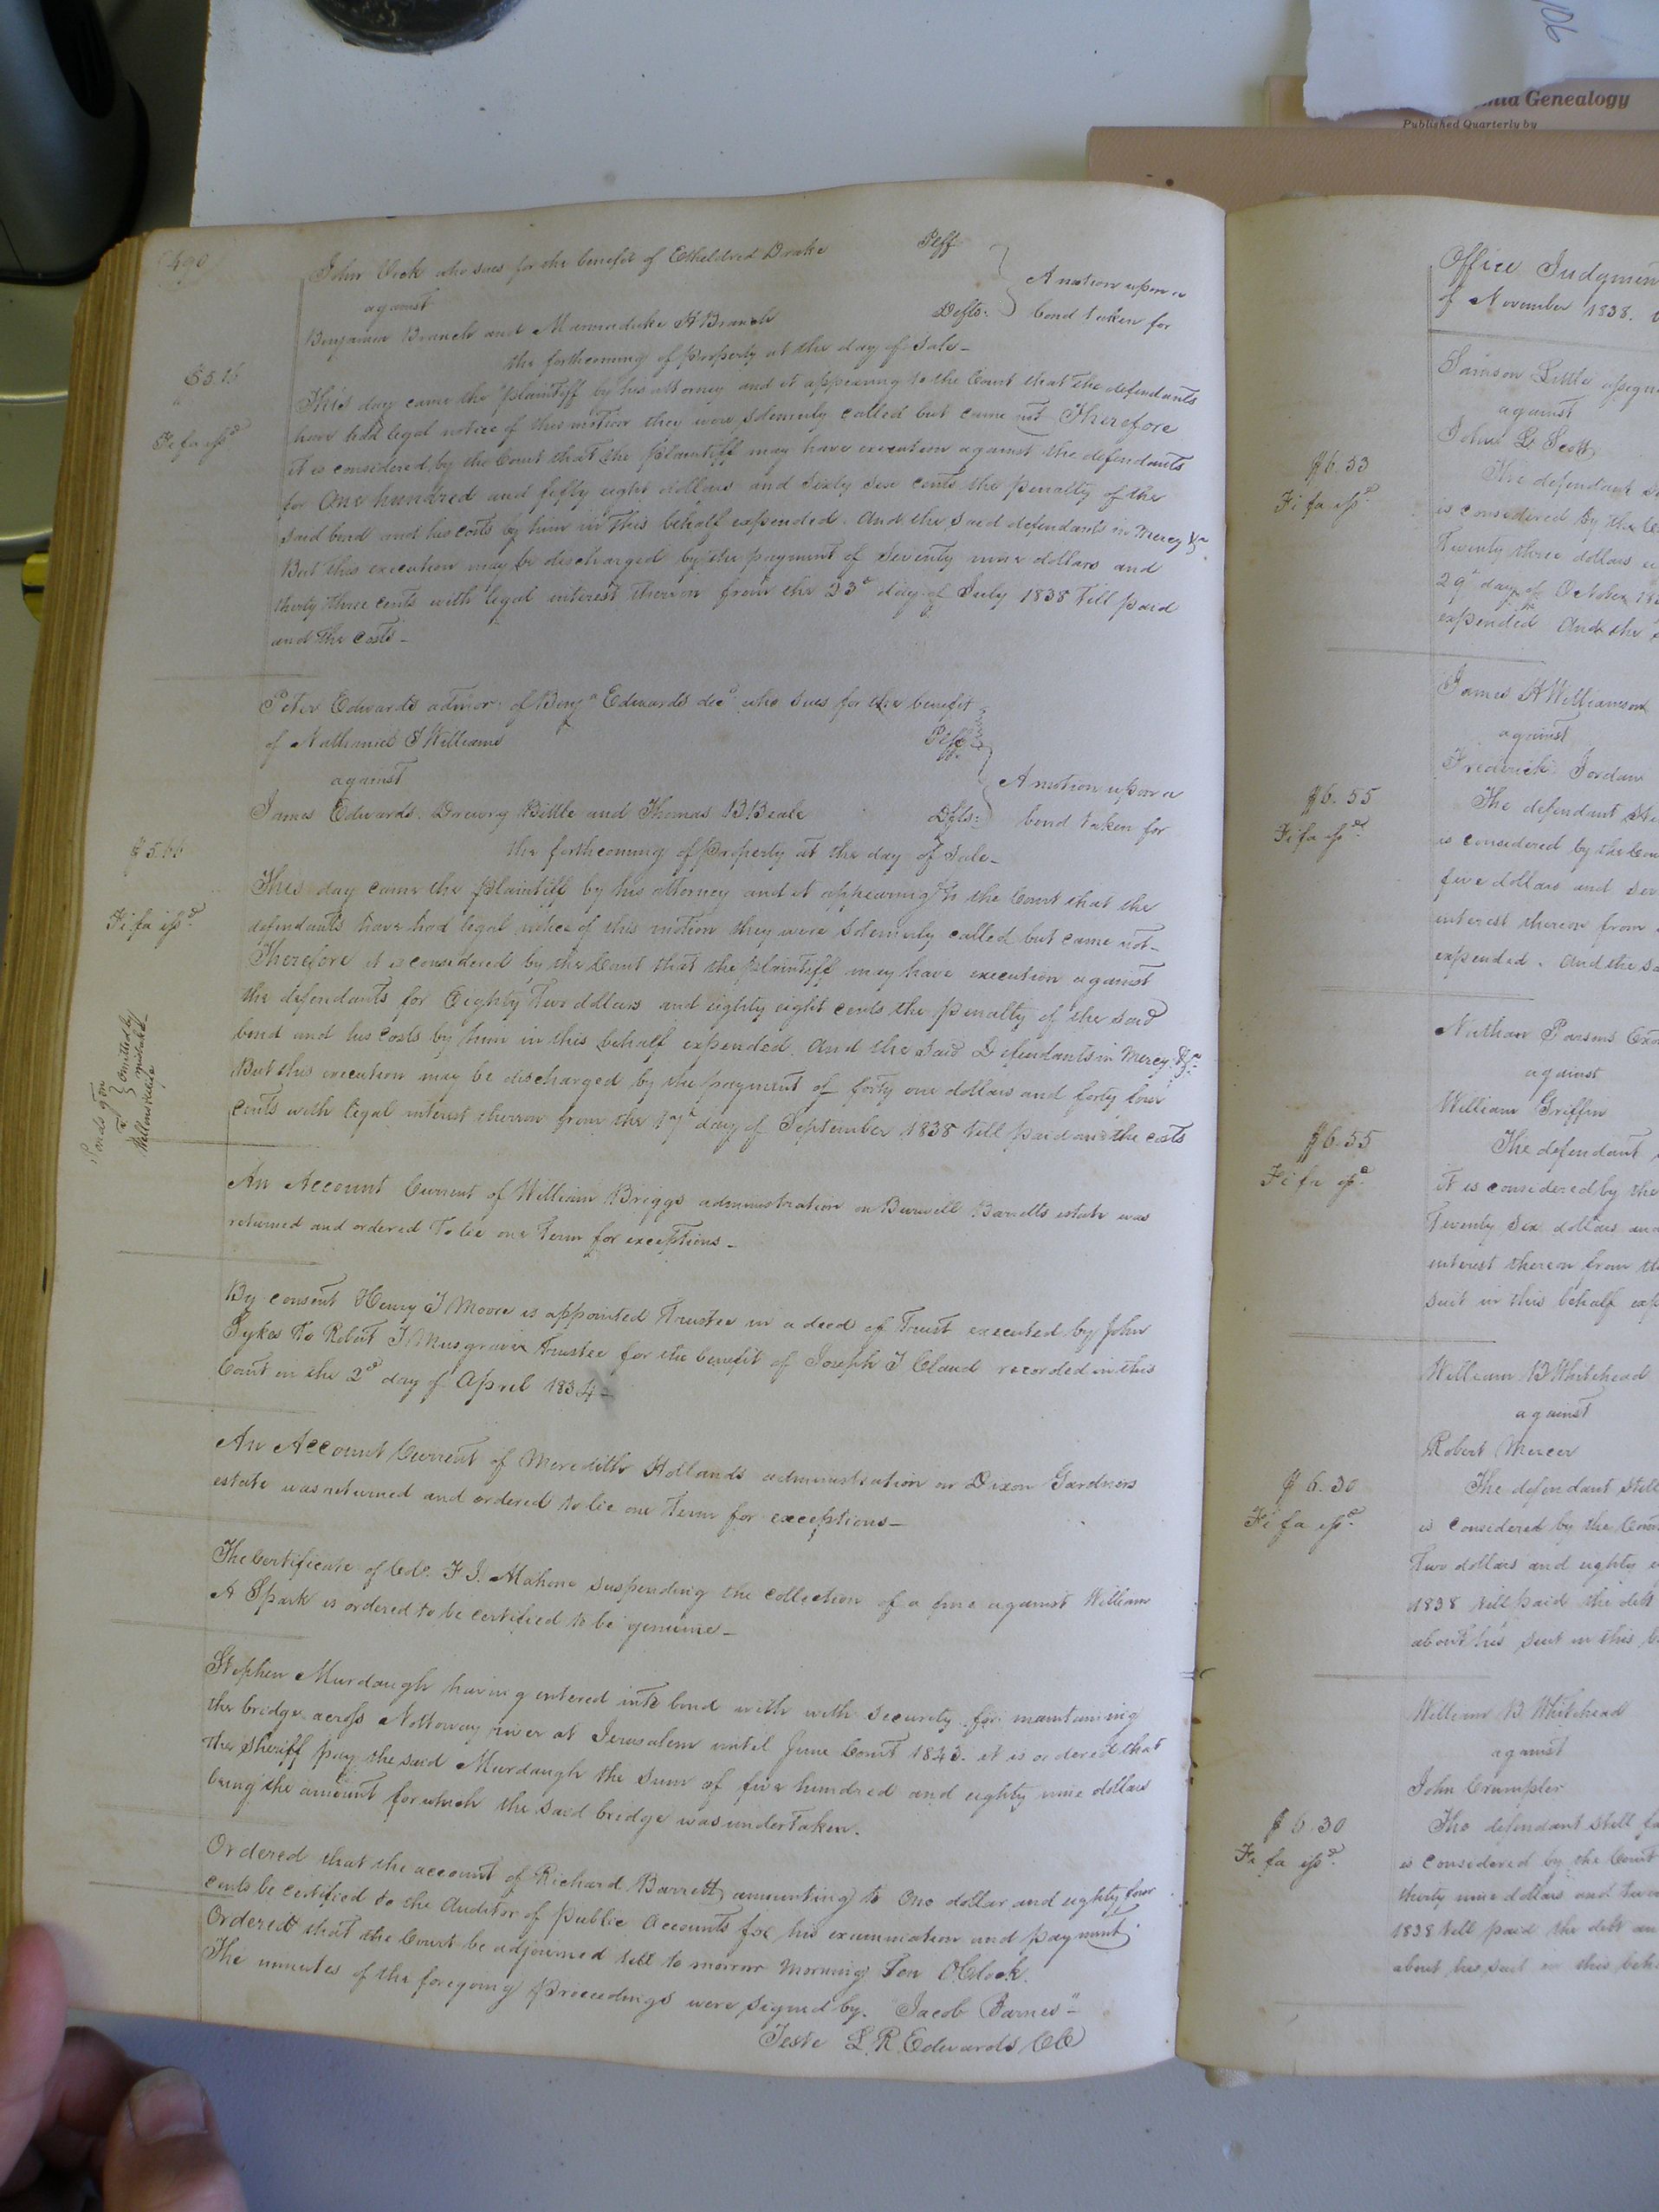 490
John Vick who sues for the benefit of Etheldred Drake Plff
against
A motion upon a
Benjamin Branch and Marmaduke H Branch Defts: bond taken for
the forthcoming of property at the day of Sale -
This day came the plaintiff by his attorney and it appearing to the Court that the defendants
have had legal notice of this motion they were solemnly called but came not Therefore
it is considered by the Court that the plaintiff may have execution against the defendants
for One hundred and fifty eight dollars and Sixty Six cents the penalty of the
said bond and his costs by him in this behalf expended. And the said defendants in Mercy &c
But this execution may be discharged by the payment of Seventy nine dollars and
thirty three cents with legal interest thereon from the 23d day of July 1838 till paid
and the costs -
Fi fa issd
Peter Edwards admor. of Benja Edwards decd who sues for the benefit
of Nathaniel Williams Plff
against
A motion upon a
James Edwards, Drewry Bittle and Thomas B Beale Defts: bond taken for
the forthcoming of property at the day of Sale -
This day came the plaintiff by his attorney and it appearing to the Court that the
defendants have had legal notice of this motion they were solemnly called but came not -
Therefore it is considered by the Court that the plaintiff may have execution against
the defendants for Eighty Two dollars and eighty eight cents the penalty of the said
bond and his costs by him in this behalf expended. And the said Defendants in Mercy &c
But this execution may be discharged by the payment of forty one dollars and forty four
cents with legal interest thereon from the 17th day of September 1838 till paid and the costs
Fi fa issd
omitted by
mistake
An Account Current of William Briggs administration on Burwell Barretts estate was
returned and ordered to lie one Term for exceptions -
By consent Henry J Moore is appointed Trustee in a deed of Trust executed by John
Sykes to Robert J Musgrave Trustee for the benefit of Joseph J Claud recorded in this
Court on the 2d day of April 1834 -
An Account Current of Meredith Hollands administration on Dixon Gardners
estate was returned and ordered to lie one Term for exceptions -
The Certificate of Colo. F J. Mahone suspending the collection of a fine against William
A Spark is ordered to be certified to be genuine -
Stephen Murdaugh having entered into bond with with security for maintaining
the bridge across Nottoway river at Jerusalem until June Court 1843. it is ordered that
the Sheriff pay the said Murdaugh the sum of five hundred and eighty nine dollars
being the amount for which the said bridge was undertaken.
Ordered that the account of Richard Barrett, amounting to One dollar and eighty four
cents be certified to the Auditor of Public Accounts for his examination and payment.
Ordered that the Court be adjourned till to morrow morning Ten OClock.
The minutes of the foregoing proceedings were signed by. "Jacob Barnes" -
Teste L. R. Edwards CC
Genealogy
Published Quarterly by
Office Judgmen
of November 1838.
Samson Little assign
against
John L Scott
$6.53
Fi fa issd
The defendant
is considered by the Co
Twenty three dollars
29th day of October
expended And the
James H Williamson
against
Frederick Jordan
$6.55
Fi fa issd
The defendant
is considered by the Cou
five dollars and
interest thereon from
expended. And the sa
Nathan Parsons
against
William Griffin
$6.55
Fi fa issd
The defendant
it is considered by the
Twenty Six dollars and
interest thereon from th
suit in this behalf exp
William B Whitehead
against
Robert Mercer
$6.30
Fi fa issd
The defendant still
is considered by the Cou
Two dollars and eighty
1838 till paid the debt
about his suit in this b
William B Whitehead
against
John Crumpler
$6.30
Fi fa issd
The defendant still fa
is considered by the Court
thirty nine dollars and
1838 till paid the debt an
about his suit in this beh